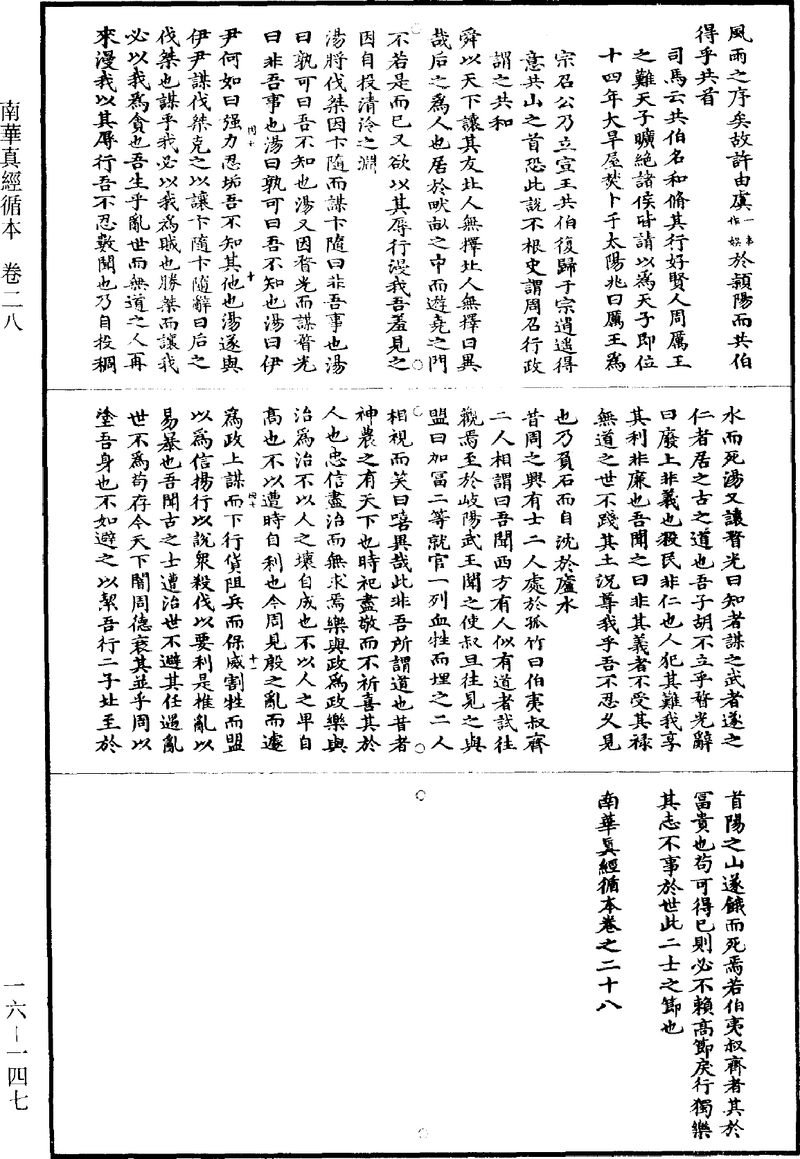 風雨之序矣故許由虞一本作娛於潁陽而共伯
得乎共首
司馬云共伯名和脩其行好賢人周厲王
之難天子曠絕諸侯皆請以為天子即位
十四年大旱屋焚卜于太陽兆曰厲王為
宗召公乃立宣王共伯復歸于宗逍遙得
意共山之首恐此說不根史謂周召行政
謂之共和
舜以天下讓其友北人無擇北人無擇曰異
哉后之為人也居於畎畝之中而遊堯之門
不若是而已又欲以其辱行漫我吾羞見之
因自投清泠之淵
湯將伐桀因卞隨而謀卞隨曰非吾事也湯
曰孰可曰吾不知也湯又因瞀光而謀瞀光
曰非吾事也湯曰孰可曰吾不知也湯曰伊
尹何如曰强力忍垢吾不知其他也湯遂與
伊尹謀伐桀克之以讓卞隨卞隨辭曰后之
伐桀也謀乎我必以我為賊也勝桀而讓我
必以我為貪也吾生乎亂世而無道之人再
來漫我以其辱行吾不忍數聞也乃自投稠
水而死湯又讓瞀光曰知者謀之武者遂之
仁者居之古之道也吾子胡不立乎瞀光辭
曰廢上非義也殺民非仁也人犯其難我享
其利非廉也吾聞之曰非其義者不受其祿
無道之世不踐其土況尊我乎吾不忍久見
也乃負石而自沈於廬水
昔周之興有士二人處於孤竹曰伯夷叔齊
二人相謂曰吾聞西方有人似有道者試往
觀焉至於岐陽武王聞之使叔旦往見之與
盟曰加富二等就官一列血牲而埋之二人
相視而笑曰嘻異哉此非吾所謂道也昔者
神農之有天下也時祀盡敬而不祈喜其於
人也忠信盡治而無求焉樂與政為政樂與
治為治不以人之壞自成也不以人之卑自
高也不以遭時自利也今周見殷之亂而遽
為政上謀而下行貨阻兵而保威割牲而盟
以為信揚行以說衆殺伐以要利是推亂以
易暴也吾聞古之士遭治世不避其任遇亂
世不為苟存今天下闇周德衰其並乎周以
塗吾身也不如避之以絜吾行二子北至於
首陽之山遂餓而死焉若伯夷叔齊者其於
富貴也苟可得已則必不賴高節戾行獨樂
其志不事於世此二士之節也
南華真經循本卷之二十八
南華真經循本 卷二八
一六－一四七